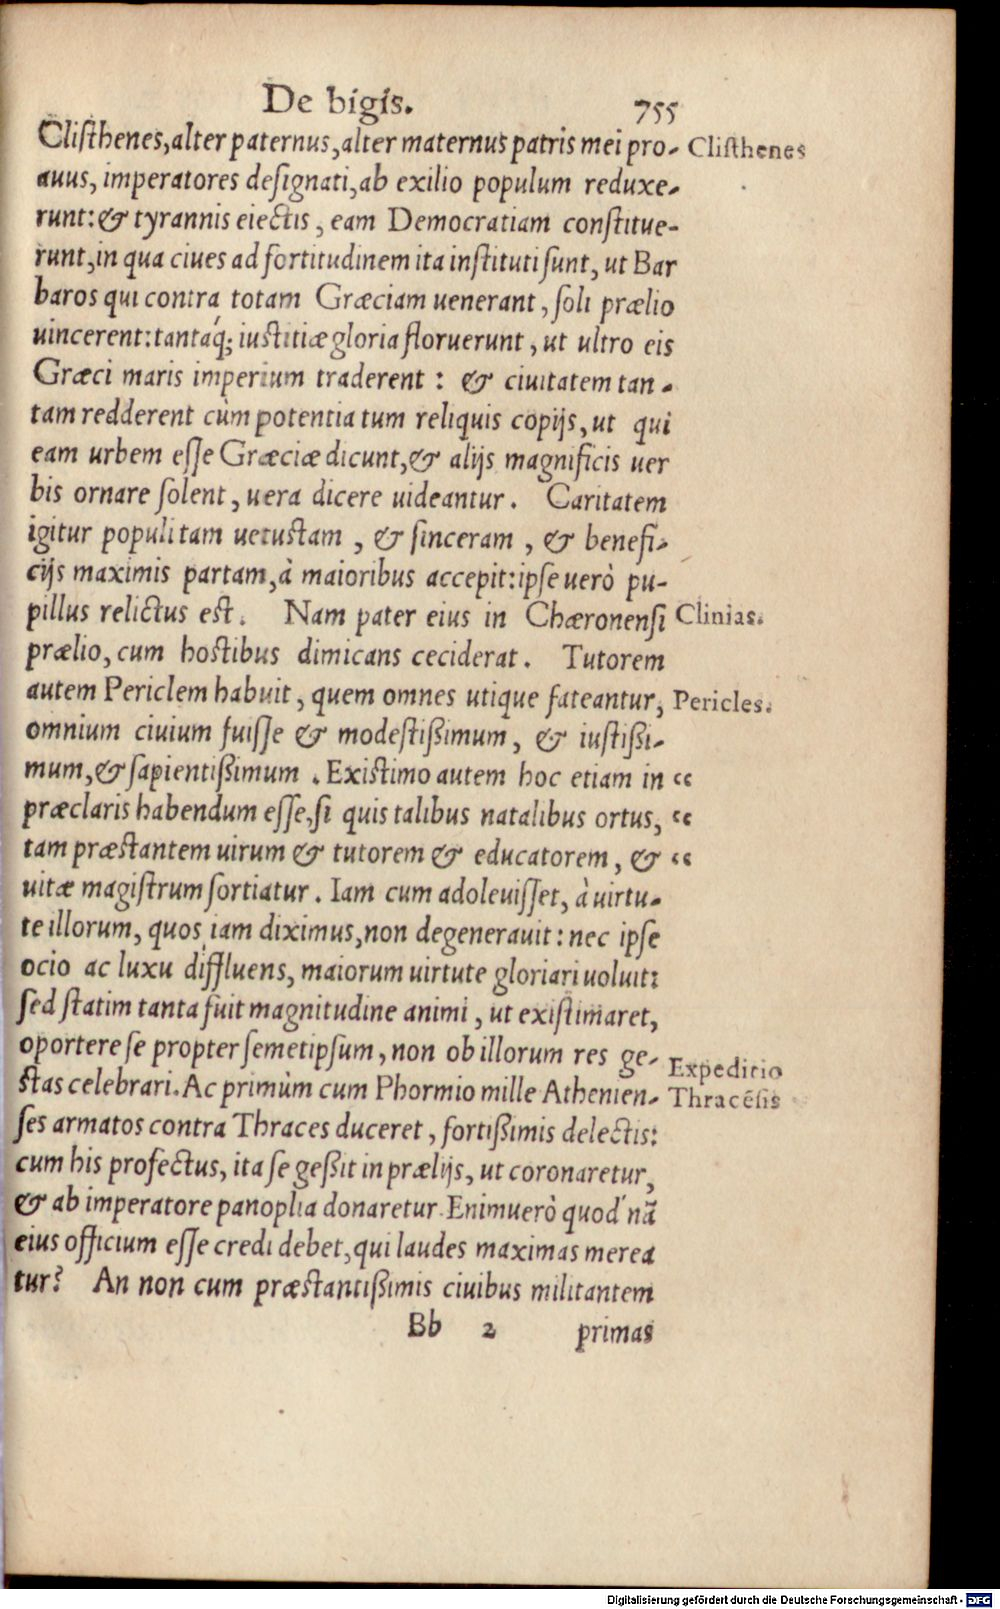 De bigis. 755
Clisthenes, alter paternus, alter maternus patris mei pro- Clisthenes
auus, imperatores designati, ab exilio populum reduxe-
runt: & tyrannis eiectis, eam Democratiam constitue-
runt, in qua ciues ad fortitudinem ita instituti sunt, ut Bar
baros qui contra totam Græciam uenerant, soli prælio
uincerent: tantaq́; iustitiæ gloria floruerunt, ut ultro eis
Græci maris imperium traderent: & ciuitatem tan-
tam redderent cùm potentia tum reliquis copijs, ut qui
eam urbem esse Græciæ dicunt, & alijs magnificis uer
bis ornare solent, uera dicere uideantur. Caritatem
igitur populi tam uetustam, & sinceram, & benefi-
cijs maximis partam, à maioribus accepit: ipse uerò pu-
pillus relictus est. Nam pater eius in Chæronensi Clinias.
prælio, cum hostibus dimicans ceciderat. Tutorem
autem Periclem habuit, quem omnes utique fateantur, Pericles.
omnium ciuium fuisse & modestißimum, & iustißi-
mum, & sapientißimum. Existimo autem hoc etiam in “
præclaris habendum esse, si quis talibus natalibus ortus, “
tam præstantem uirum & tutorem & educatorem, & “
uitæ magistrum sortiatur. Iam cum adoleuisset, à uirtu-
te illorum, quos iam diximus, non degenerauit: nec ipse
ocio ac luxu diffluens, maiorum uirtute gloriari uoluit:
sed statim tanta fuit magnitudine animi, ut existimaret,
oportere se propter semetipsum, non ob illorum res ge- Expeditio
stas celebrari. Ac primùm cum Phormio mille Athenien- Thracẽsis
ses armatos contra Thraces duceret, fortißimis delectis:
cum his profectus, ita se geßit in prælijs, ut coronaretur,
& ab imperatore panoplia donaretur. Enimuerò quod nã
eius officium esse credi debet, qui laudes maximas merea
tur? An non cum præstantißimis ciuibus militantem
Bb 2 primas
Digitalisierung gefördert durch die Deutsche Forschungsgemeinschaft - DFG